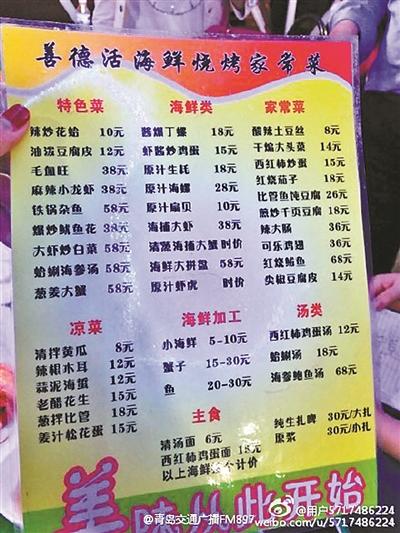 善德活海鲜烧烤家常菜
特色菜
辣炒花蛤 10元
油泼豆腐皮 12元
毛血旺 38元
麻辣小龙虾 38元
铁锅杂鱼 58元
爆炒鱿鱼花 38元
大虾炒白菜 58元
蛤蜊海参汤 58元
葱姜大蟹 58元
海鲜类
酱爆丁螺 18元
虾酱炒鸡蛋 15元
原汁生蚝 18元
原汁海螺 28元
原汁扇贝 10元
海捕大虾 38元
清蒸海捕大蟹 时价
海鲜大拼盘 58元
原汁虾虎 时价
家常菜
酸辣土豆丝 8元
干煸大头菜 14元
西红柿炒蛋 15元
红烧茄子 18元
比管鱼炖豆腐 26元
煎炒千页豆腐 18元
辣大肠 36元
可乐鸡翅 36元
红烧鲅鱼 68元
尖椒豆腐皮 14元
凉菜
清拌黄瓜 8元
辣根木耳 12元
蒜泥海蜇 12元
老醋花生 15元
葱拌比管 18元
姜汁松花蛋 15元
海鲜加工
小海鲜 5-10元
蟹子 15-30元
鱼 20-30元
汤类
西红柿鸡蛋汤 12元
蛤蜊汤 18元
海参鲍鱼汤 68元
主食
清汤面 6元
西红柿鸡蛋面 15元
以上海鲜 个计价
纯生扎啤 30元/大扎
原浆 30元/小扎
美味从此开始
@青岛交通广播FM897
@用户5717486224
weibo.com/u/5717486224